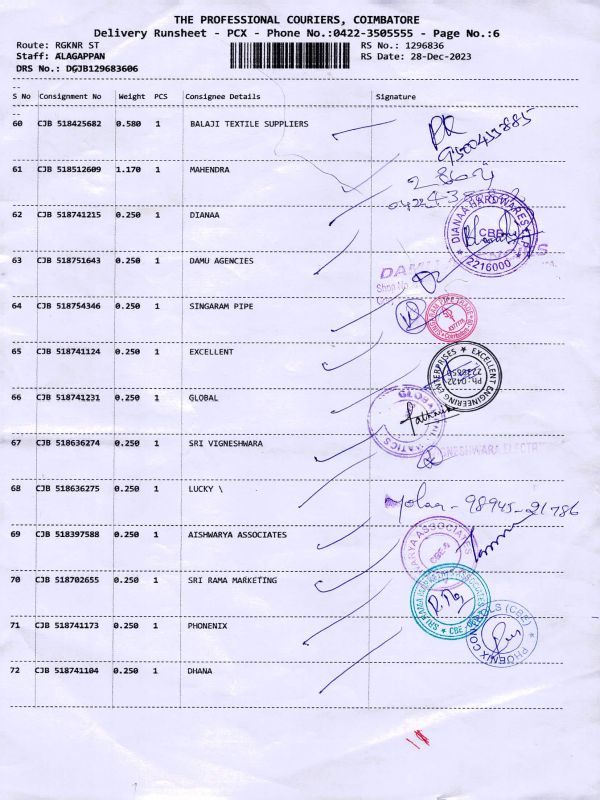 THE PROFESSIONAL COURIERS, COIMBATORE
Delivery Runsheet - PCX - Phone No.:0422-3505555 - Page No.:6
Route: RGKNR ST RS No.: 1296836
Staff: ALAGAPPAN RS Date: 28-Dec-2023
DRS No.: DGJB129683606
S No Consignment No Weight PCS Consignee Details Signature
60 CJB 518425682 0.580 1 BALAJI TEXTILE SUPPLIERS
61 CJB 518512609 1.170 1 MAHENDRA
62 CJB 518741215 0.250 1 DIANAA
DIANAA HARDWARES
CBE
2216000
63 CJB 518751643 0.250 1 DAMU AGENCIES
64 CJB 518754346 0.250 1 SINGARAM PIPE
65 CJB 518741124 0.250 1 EXCELLENT
EXCELLENT ENGINEERING ENTERPRISES
66 CJB 518741231 0.250 1 GLOBAL
67 CJB 518636274 0.250 1 SRI VIGNESHWARA
68 CJB 518636275 0.250 1 LUCKY \
98945-21786
69 CJB 518397588 0.250 1 AISHWARYA ASSOCIATES
70 CJB 518702655 0.250 1 SRI RAMA MARKETING
71 CJB 518741173 0.250 1 PHONENIX
PHOENIX CONTROLS (CBE)
72 CJB 518741104 0.250 1 DHANA